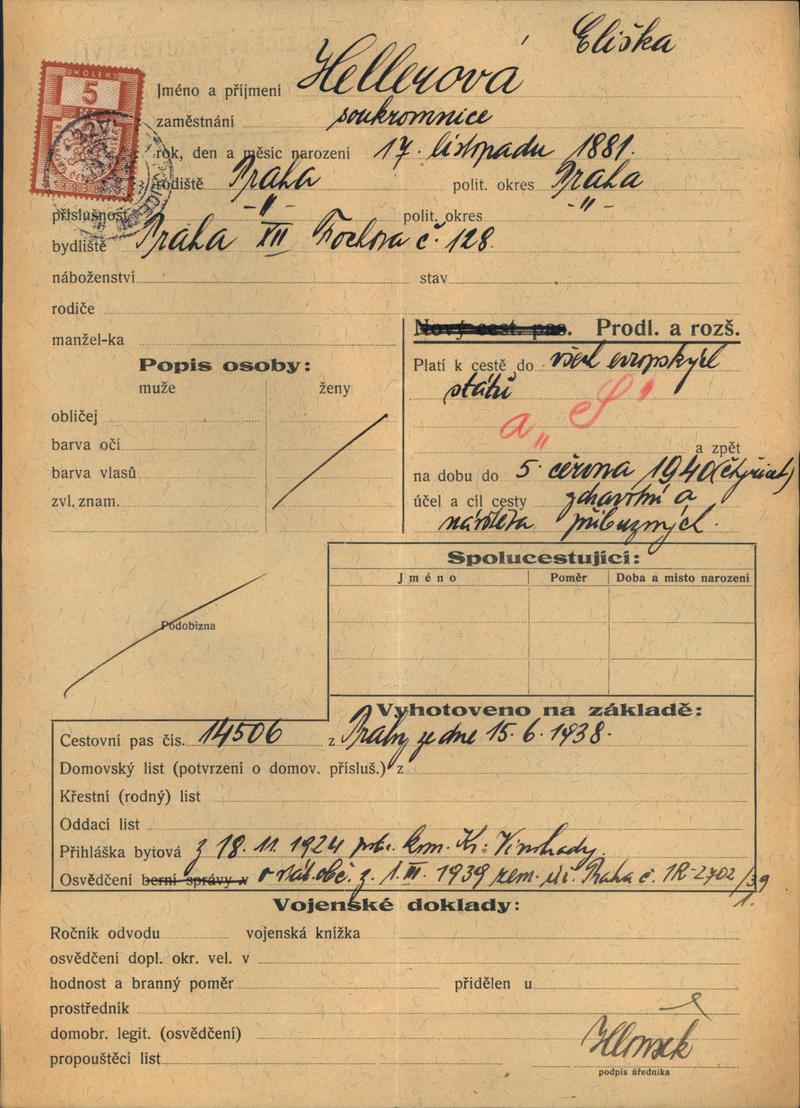 Eliška
Jméno a příjmení Hellerová
KOLEK
5
zaměstnání soukromnice
rok, den a měsíc narození 17. listopadu 1881.
rodiště Praha polit. okres Praha
příslušnost -"- polit. okres -"-
bydliště Praha XII Fochova č. 128.
náboženství stav
rodiče
manžel-ka
Nový cest. pas. Prodl. a rozš.
Popis osoby:
muže ženy
Platí k cestě do všech evropských
států
obličej
a "S"
barva očí
a zpět
barva vlasů
na dobu do 5. června 1940 (čtyřicet)
zvl. znam.
účel a cíl cesty zdravotní a
návštěva příbuzných.
Spolucestující:
Jméno Poměr Doba a místo narození
Podobizna
Vyhotoveno na základě:
Cestovní pas čís. 14506 z Prahy ze dne 15.6.1938.
Domovský list (potvrzení o domov. přísluš.) z
Křestní (rodný) list
Oddací list
Přihláška bytová z 18. 11. 1924 kom. Kr: Vinohrady.
Osvědčení berní správy v o stát. obč. z. 1. III. 1939 zem. úř. Praha č. 1R-2702/39
1.
Vojenské doklady:
Ročník odvodu vojenská knížka
osvědčení dopl. okr. vel. v
hodnost a branný poměr přidělen u
prostředník
domobr. legit. (osvědčení)
propouštěcí list
podpis úředníka